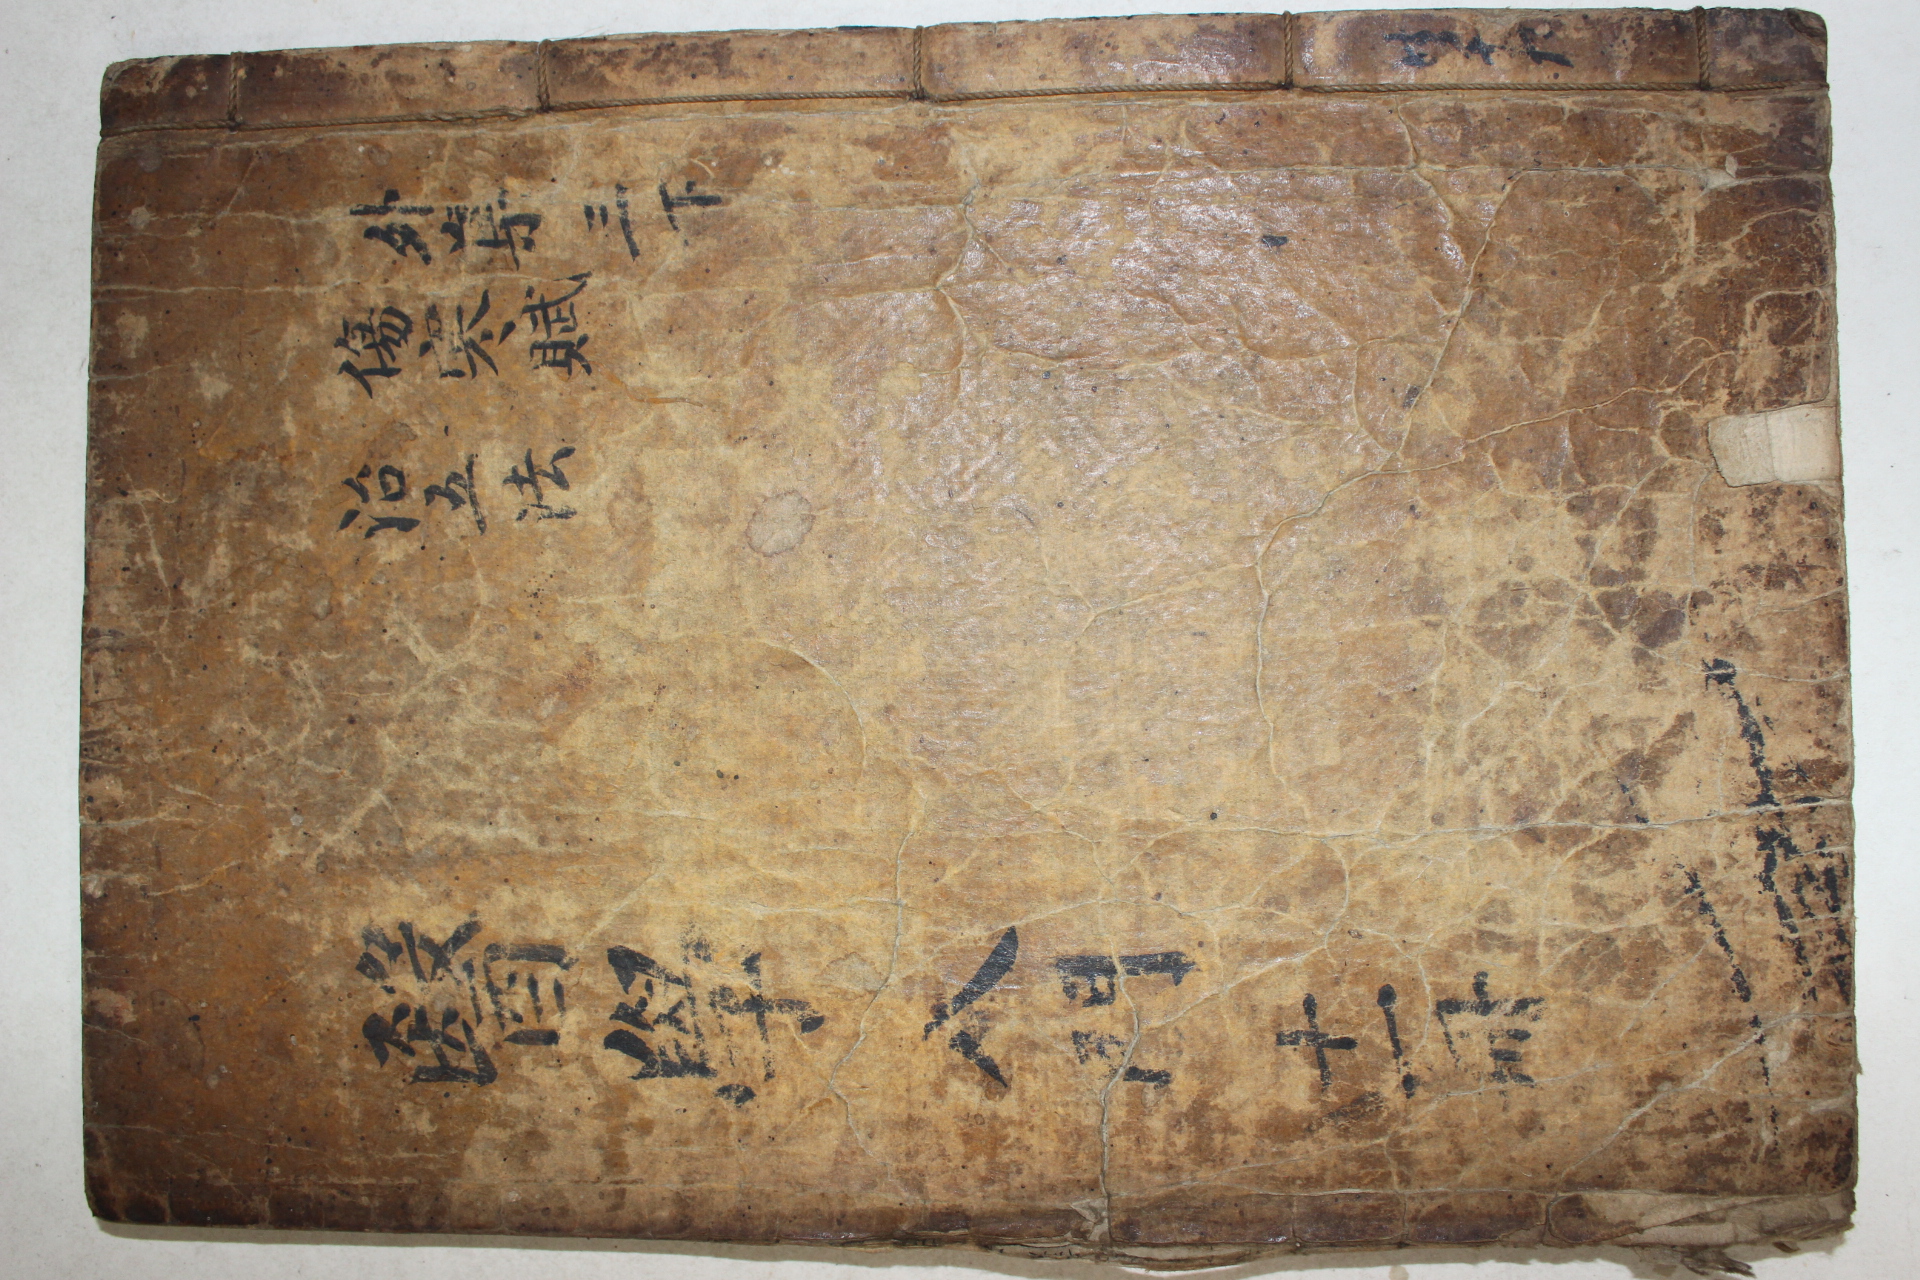 外集 三下
傷寒賦
治五法
醫學入門 十一冊
共十九